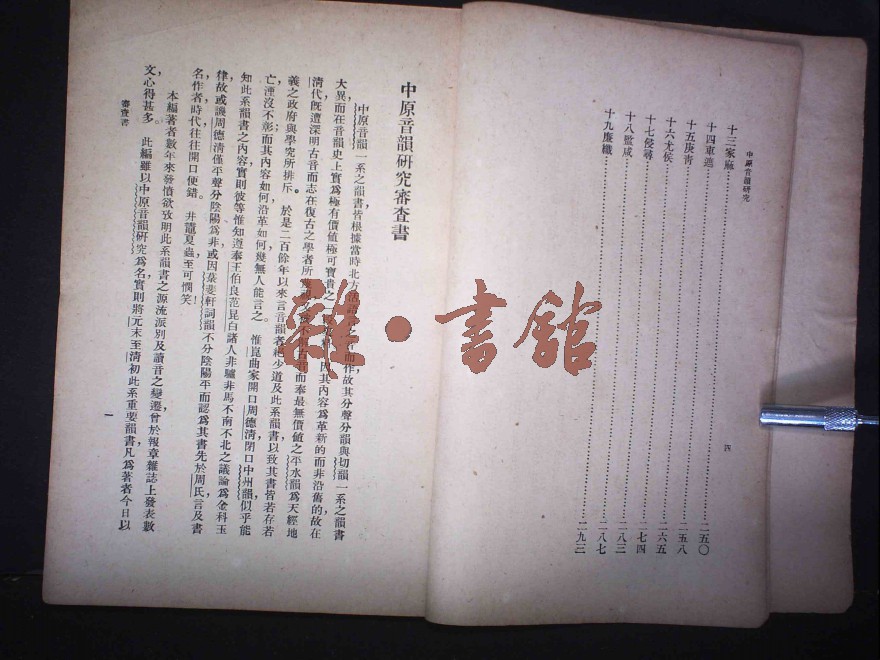 中原音韻研究
十三家麻……二五〇
十四車遮……二五八
十五庚青……二六五
十六尤侯……二七四
十七侵尋……二八三
十八監咸……二八七
十九廉纖……二九三
四
中原音韻研究審查書
中原音韻一系之韻書皆根據當時北方活語而作故其分聲分韻與切韻一系之韻書
大異而在音韻史上實爲極有價值極可寶貴之因其內容爲革新的而非沿舊的故在
清代旣遭深明古音而志在復古之學者所不古音而奉最無價値之平水韻爲天經地
義之政府與學究所排斥。於是二百餘年以來言音韻者絕少道及此系韻書以致其書皆若存若
亡湮沒不彰；而其內容如何，沿革如何，幾無人能言之。惟崑曲家開口周德清，閉口中州韻，似乎能
知此系韻書之內容實則彼等惟知道奉王伯良范昆白諸人非驢非馬不南不北之議論爲金科玉
律故或譏周德清僅平聲分陰陽爲非或因菉斐軒詞韻不分陰陽平而認爲其書先於周氏言及書
名，作者，時代，往往開口便錯。井鼃夏蟲，至可憫笑！
本編著者數年來發憤欲致明此系韻書之源流派別及讀音之變遷，曾於報章雜誌上發表數
文，心得甚多。此編雖以中原音韻研究爲名，實則將元末至清初此系重要韻書凡爲著者今日以
審查書
一
雒·書館